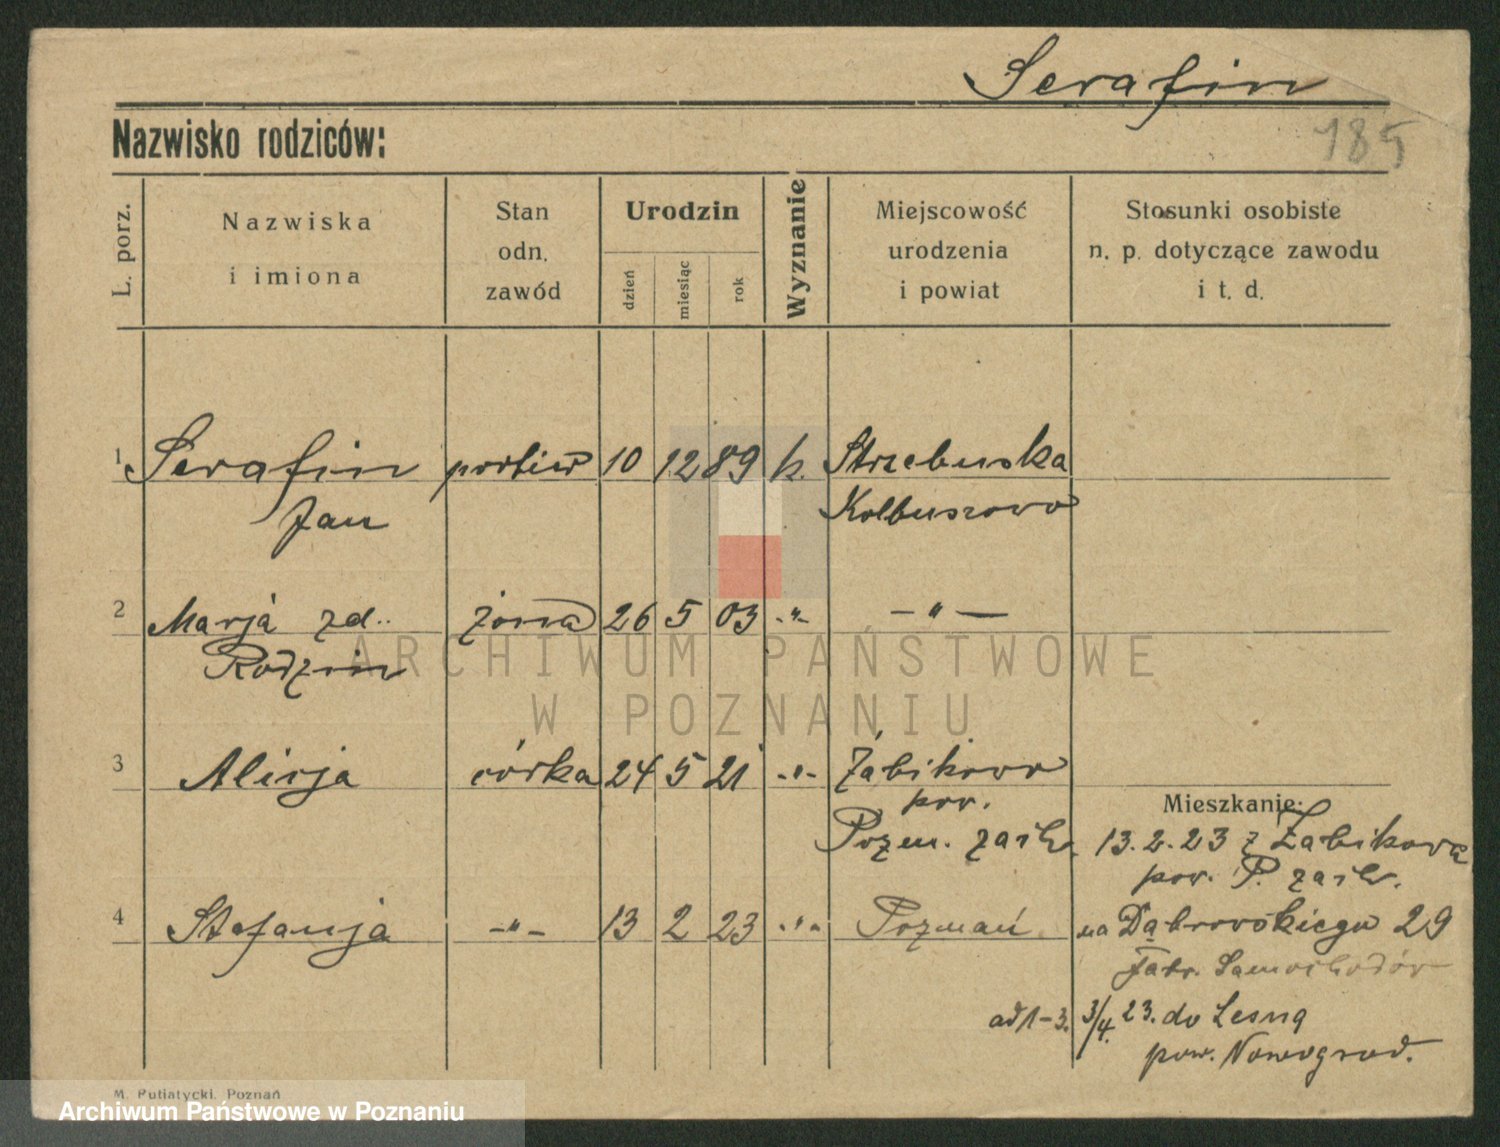 Serafin
Nazwisko rodziców:
185
L. porz.
Nazwiska
i imiona
Stan
odn.
zawód
Urodzin
dzień
miesiąc
rok
Wyznanie
Miejscowość
urodzenia
i powiat
Stosunki osobiste
n. p. dotyczące zawodu
i t. d.
1 Serafin portier 10 12 89 k. Strzebuska
Jan Kolbuszowo
2 Marja zd. żona 26 5 03 -"- -"-
Rodzrin
3 Alicja córka 24 5 21 -"- Żabikowo
pow.
Mieszkanie:
Pozn. zach. 13.2.23 z Żabikowa
pow. P. zach.
4 Stefanja -"- 13 2 23 -"- Poznań na Dąbrowskiego 29
Fabr. Samochodów
ad 1-3. 3/4. 23. do Lesna
pow. Nowogrod.
M. Putiatycki. Poznań
ARCHIWUM PAŃSTWOWE
W POZNANIU
Archiwum Państwowe w Poznaniu